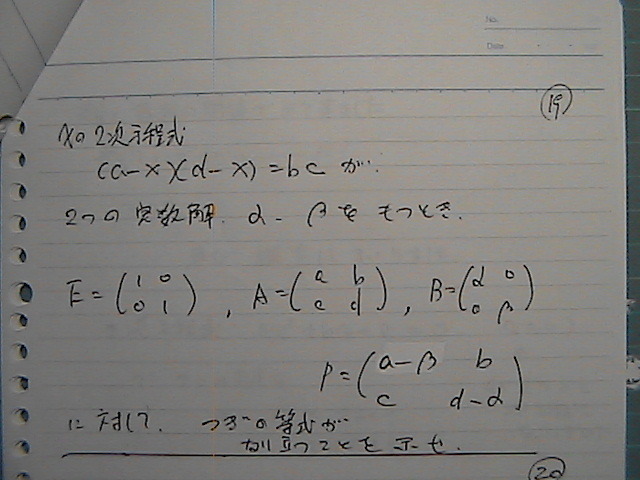 No.
Date
19
xの2次方程式
(a-x)(d-x)=bc が.
2つの実数解. α. βをもつとき.
E=(1 0 0 1), A=(a b c d), B=(α 0 0 β)
P=(a-β b c d-α)
に対して. つぎの等式が
なり立つことを示せ.
20